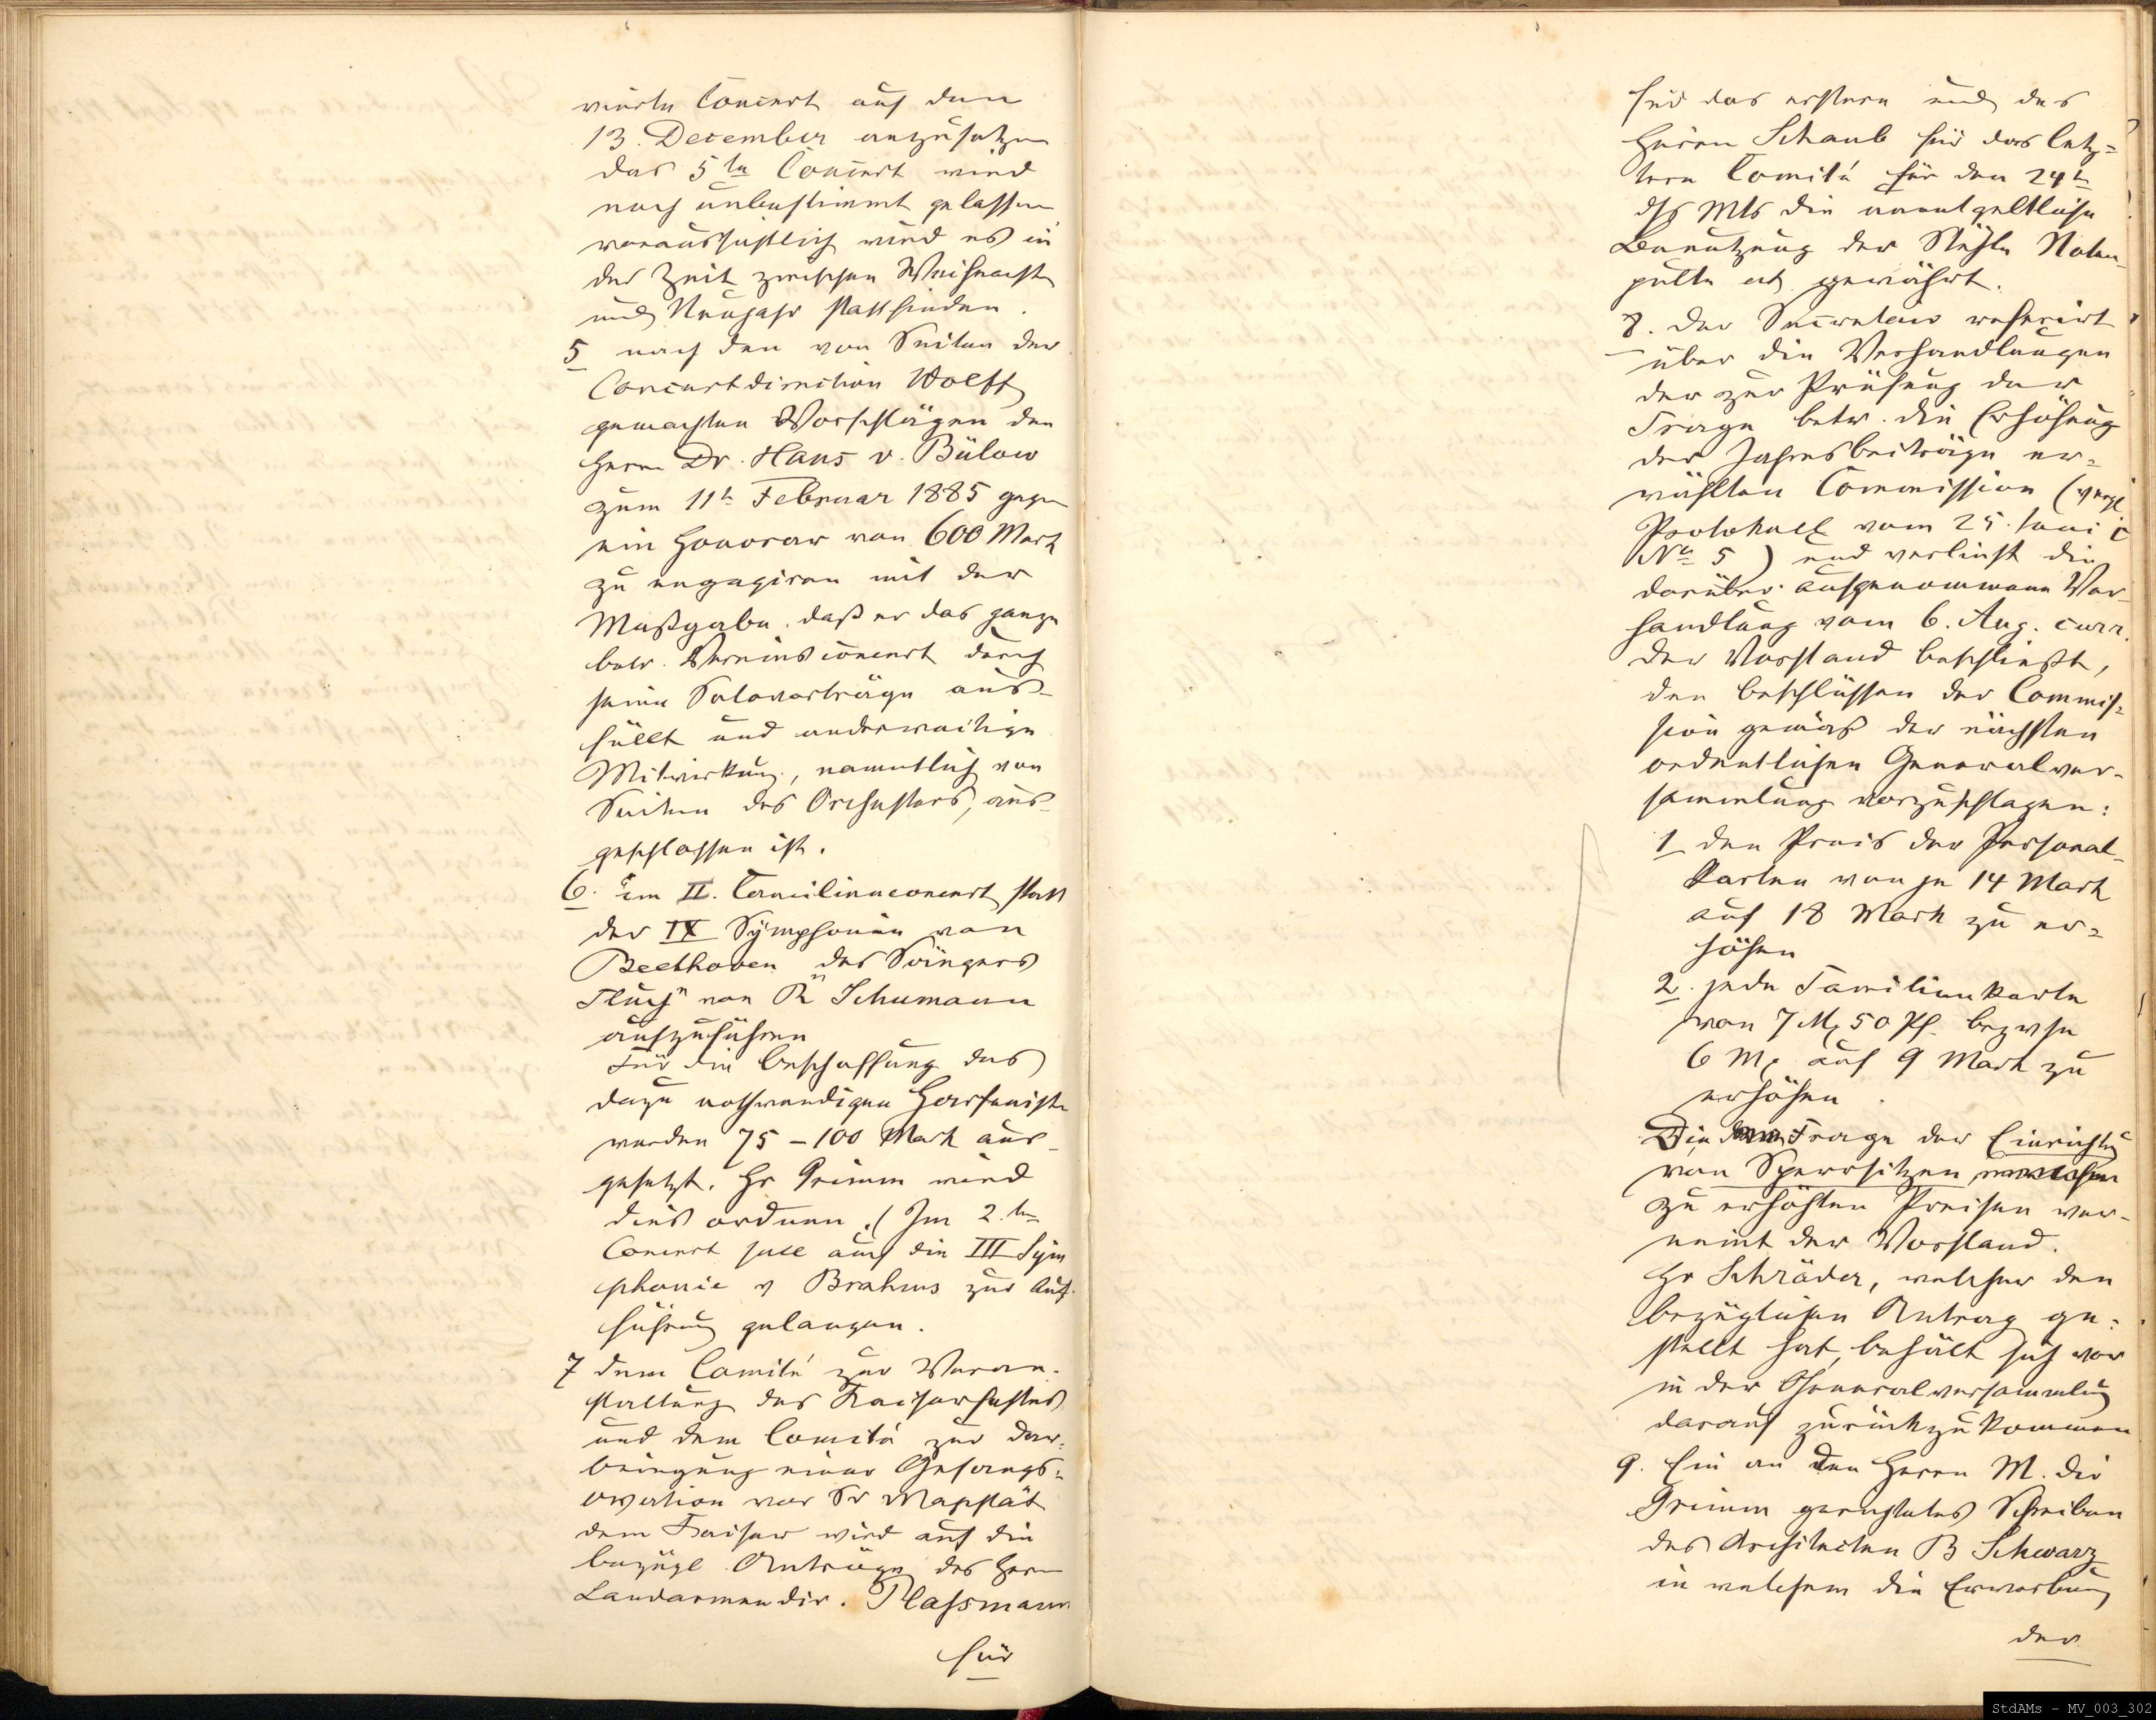 vierte Concert auf den
13. December anzusetzen
das 5te Concert wird
noch unbestimmt gelassen
voraussichtlich wird es in
der Zeit zwischen Weihnacht
und Neujahr stattfinden.
5 nach den von Seiten der
Concertdirection Wolff
gemachten Vorschlägen den
Herrn Dr. Hans v. Bülow
zum 11t Februar 1885 gegen
ein Honorar von 600 Mark
zu engagiren mit der
Maßgabe, daß er das ganze
betr. Vereinsconcert durch
seine Solovorträge aus-
füllt und anderweitige
Mitwirkung, namentlich von
Seiten des Orchesters, aus-
geschlossen ist.
6. im II. Caecilienconcert statt
der IX Symphonie von
Beethoven „des Sängers
Fluch" von R Schumann
aufzuführen
Für die Beschaffung des
dazu nothwendigen Harfenisten
werden 75-100 Mark aus-
gesetzt. Hr Grimm wird
dies ordnen. (Im 2.ten
Concert soll auch die III Sym
phonie v Brahms zur Auf-
führung gelangen.
7 dem Comité zur Veran-
staltung des Kaiserfestes
und dem Comité zur Dar-
bringung einer Gesangs-
ovation vor Sr Majestät
dem Kaiser wird auf die
bezügl. Anträge des Herrn
Landarmendir. Plassmann
für
für das erstere und des
Herrn Schaub für das letz-
tere Comité für den 24t
ds Mts die unentgeltliche
Benutzung der Stühle Noten-
pulte etc gewährt.
8. Der Secretair referirt
über die Verhandlungen
der zur Prüfung der
Frage betr. die Erhöhung
der Jahresbeiträge er-
wählten Commission (vergl
Protokoll vom 25. Juni c
No 5) und verliest die
darüber aufgenommene Ver-
handlung vom 6. Aug. curr.
Der Vorstand beschließt,
den Beschlüssen der Commis-
sion gemäß der nächsten
ordentlichen Generalver-
sammlung vorzuschlagen:
1 den Preis der Personal-
karten von je 14 Mark
auf 18 Mark zu er-
höhen
2. jede Familienkarte
von 7 M, 50 Pf. bezwse
6 M, auf 9 Mark zu
erhöhen.
Die Frage der Einrichtung
von Sperrsitzen
zu erhöhten Preisen ver-
neint der Vorstand.
Hr Schräder, welcher den
bezüglichen Antrag ge-
stellt hat, behält sich vor
in der Generalversammlung
darauf zurückzukommen
9. Ein an den Herrn M. Dir
Grimm gerichtetes Schreiben
des Architecten B Schwarz
in welchem die Erwerbung
der
StdAMs - MV_003_302